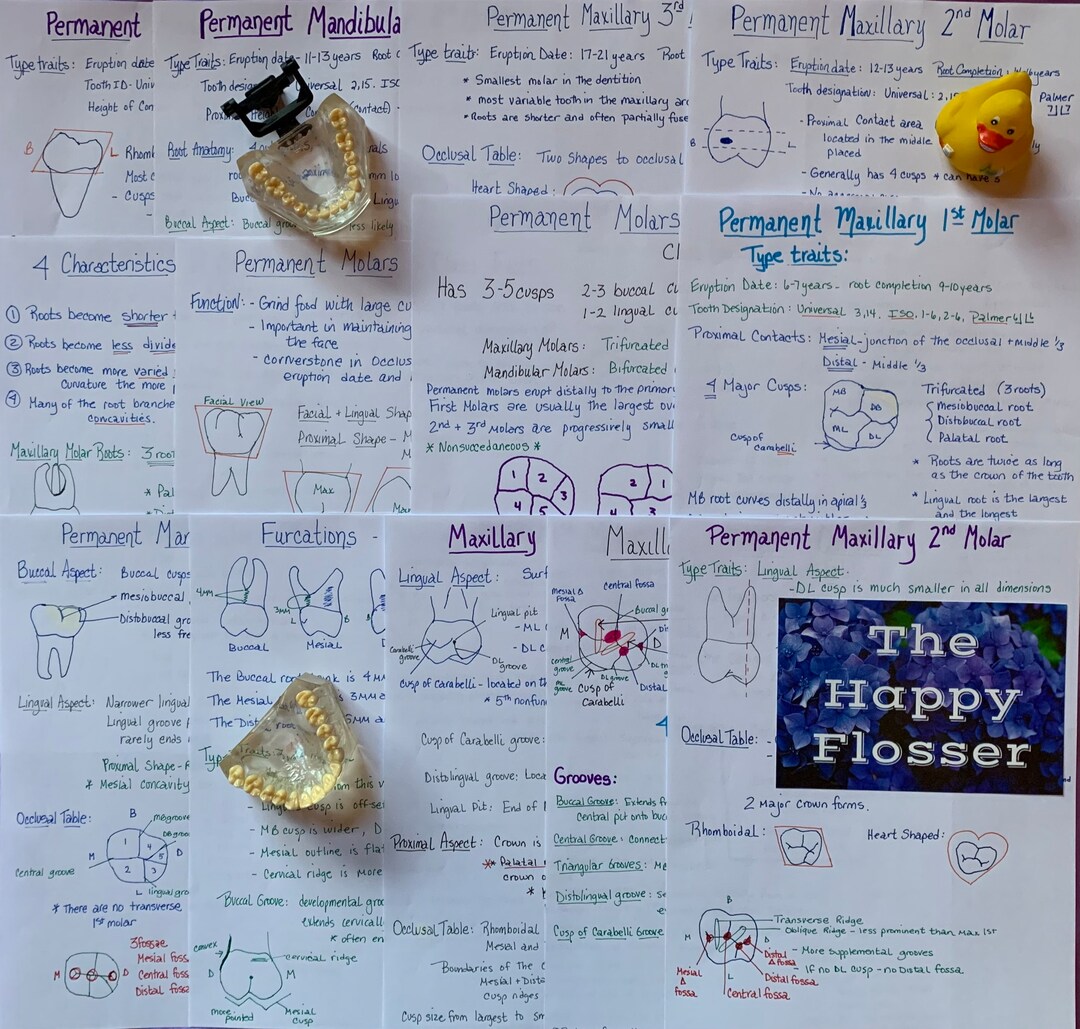 Permanent
Type traits: Eruption date
Tooth ID - Univ
Height of Con
B
L
Rhom
Most c
- Cusps
Permanent Mandibula
Type Traits: Eruption date - 11-13 years Root c
Tooth desig
versal 2,15. ISO
Proxi
(contact) -
Root Anatomy:
Buc
Buccal Aspect: Buccal gro
less likely
Permanent Maxillary 3rd
Type traits: Eruption Date: 17-21 years Root
* Smallest molar in the dentition
* most variable tooth in the maxillary arc
* Roots are shorter and often partially fuse
Occlusal Table: Two shapes to occlusal
Heart Shaped:
Permanent Maxillary 2nd Molar
Type Traits: Eruption date: 12-13 years Root Completion:
Tooth designation: Universal: 2,15
Palmer
7 7
B
L
- Proximal Contact area
located in the middle
placed
- Generally has 4 cusps + can have 3
4 Characteristics
① Roots become shorter +
② Roots become less divide
③ Roots become more varied
Curvature the more
④ Many of the root branche
concavities.
Maxillary Molar Roots: 3 root
* Pal
* Di
Permanent Molars
Function: - Grind food with large cu
- Important in maintaining
the face
- Cornerstone in occlus
eruption date and
Facial View
Facial + Lingual Shap
Proximal Shape - M
Max
Permanent Molars
Cl
Has 3-5 cusps
2-3 buccal cu
1-2 lingual cu
Maxillary Molars: Trifurcated
Mandibular Molars: Bifurcated
Permanent molars erupt distally to the primar
First Molars are usually the largest ov
2nd + 3rd Molers are progressively small
* Nonsuccedaneous *
1 2 3 4 5
2 1 4 3
Permanent Maxillary 1st Molar
Type traits:
Eruption Date: 6-7 years - root completion 9-10 years
Tooth Designation: Universal 3,14, ISO, 1-6, 2-6, Palmer 6 6
Proximal Contacts: Mesial - junction of the occlusal + middle 1/3
Distal - Middle 1/3
4 Major Cusps:
MB
DB
ML
DL
Cusp of
carabelli
Trifurcated (3 roots)
Mesiobuccal root
Distobuccal root
Palatal root
* Roots are twice as long
as the crown of the tooth
* Lingual root is the largest
and the longest
MB root curves distally in apical 1/3
Permanent Man
Buccal Aspect: Buccal cusps
mesiobuccal
Distobuccal gro
less fre
Lingual Aspect: Narrower lingual
Lingual groove
rarely ends
Proximal Shape - R
* Mesial concavity
Occlusal Table:
B
MB groove
DB groo
M
D
1 4 5 2 3
Central groove
L
lingual gro
* There are no transverse
1st molar
3 fossae
Mesial foss
Central foss
Distal fossa
M
D
Furcations -
4mm
3mm
L
B
D
Buccal
Mesial
The Buccal root
nk is 4 MM
The Mesial
is 3MM a
The Dist
5MM a
Typ
traits
om this v
- Lingu
cusp is off-se
- MB cusp is wider, D
- Mesial outline is flat
- Cervical ridge is more
Buccal Groove: developmental groo
extends cervicall
* often en
convex
cervical ridge
D
M
more
pointed
Mesial
Cusp
Maxillary
Lingual Aspect: Surf
Lingual pit
- ML
- DL C
Carabelli
groove
DL
groove
Cusp of Carabelli - located on th
* 5th nonfun
Cusp of Carabelli groove:
Distolingual groove: Loca
Lingual Pit: End of
Proximal Aspect: Crown is
** Palatal
crown o
Occlusal Table: Rhomboidal
Mesial and
Boundaries of the C
Mesial + Dista
Cusp ridges
Cusp size from largest to sm
Maxill
Central fossa
mesial Δ
fossa
Buccal gr
M
Dis
central
groove
DL groove
Distal
Cusp of
Carabelli
4
Grooves:
Buccal Groove: Extends fr
central pit onto buc
Central Groove: connect
Triangular Grooves: Me
Distolingual groove: Se
Cusp of Carabelli Groove
Permanent Maxillary 2nd Molar
Type Traits: Lingual Aspect.
- DL cusp is much smaller in all dimensions
The
Happy
Flosser
Occlusal Table: -
2 Major crown forms.
Rhomboidal:
Heart Shaped:
B
M
D
L
Transverse Ridge
Oblique Ridge - less prominent than Max 1st
- More supplemental grooves
Distal
Δ fossa
- If no DL cusp - no Distal fossa
Distal fossa
Mesial
Δ
fossa
Central fossa